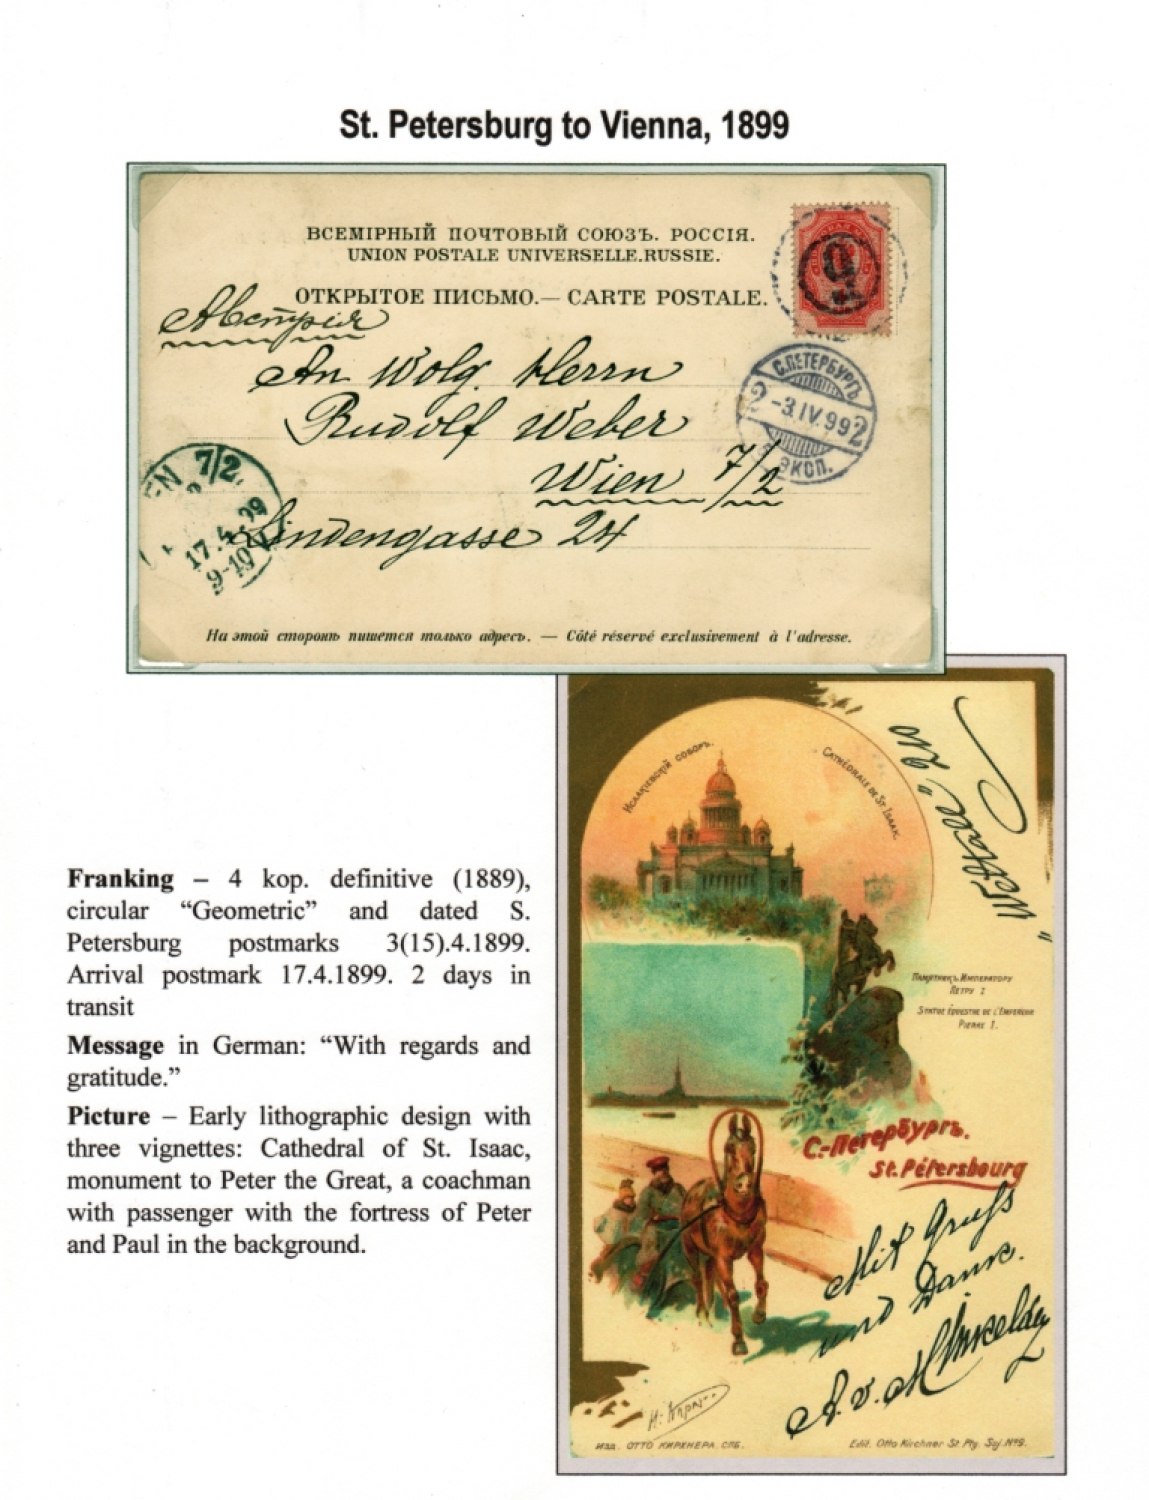 St. Petersburg to Vienna, 1899
ВСЕМІРНЫЙ ПОЧТОВЫЙ СОЮЗЪ. РОССІЯ.
UNION POSTALE UNIVERSELLE.RUSSIE.
ОТКРЫТОЕ ПИСЬМО.— CARTE POSTALE.
Австрія
An Wolg. Herrn
Rudolf Weber
Wien 7/2
Lindengasse 24
С.ПЕТЕРБУРГЪ
2 -3.IV.99 2
ЭКСП.
EN 7/2.
17.4.99
9-10V
На этой сторонѣ пишется только адресъ. — Côté réservé exclusivement à l'adresse.
Исаакіевскій соборъ.
Cathédrale de St Isaac.
Памятникъ Императору
Петру I
Statue équestre de l'Empereur
Pierre I.
С.-Петербургъ.
St. Pétersbourg
Mit Gruß
und Dank.
A. v.
ИЗД. ОТТО КИРХНЕРА. СПБ.
Edit. Otto Kirchner St. Ptg. Suj. №9.
Franking – 4 kop. definitive (1889),
circular “Geometric” and dated S.
Petersburg postmarks 3(15).4.1899.
Arrival postmark 17.4.1899. 2 days in
transit
Message in German: “With regards and
gratitude.”
Picture – Early lithographic design with
three vignettes: Cathedral of St. Isaac,
monument to Peter the Great, a coachman
with passenger with the fortress of Peter
and Paul in the background.